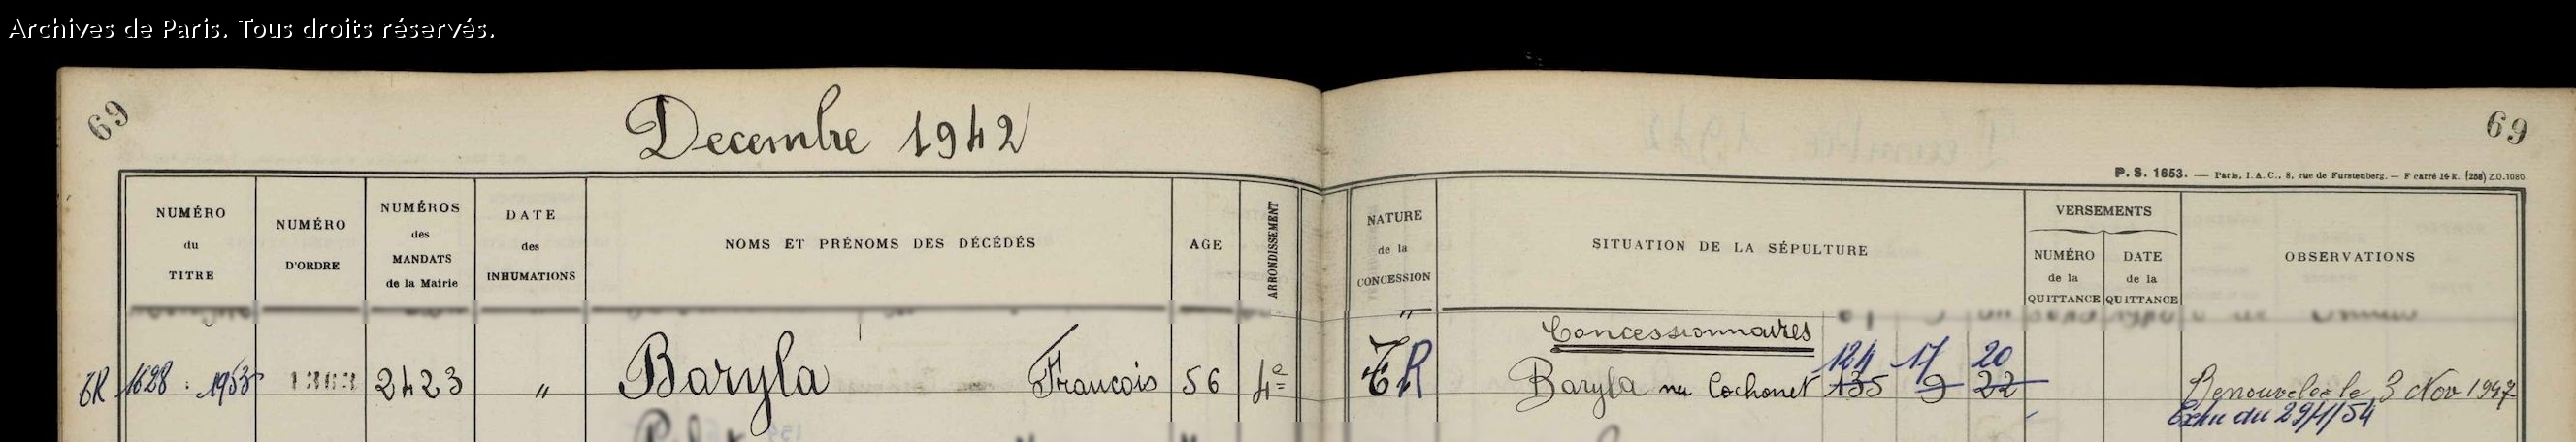 Archives de Paris. Tous droits réservés.
69
Decembre 1942
69
P. S. 1653. — Paris, I. A. C., 8, rue de Furstenberg. — F carré 16 k. (288) Z.O.1080
NUMÉRO du TITRE
NUMÉRO D'ORDRE
NUMÉROS des MANDATS de la Mairie
DATE des INHUMATIONS
NOMS ET PRÉNOMS DES DÉCÉDÉS
AGE
ARRONDISSEMENT
NATURE de la CONCESSION
SITUATION DE LA SÉPULTURE
VERSEMENTS
NUMÉRO de la QUITTANCE
DATE de la QUITTANCE
OBSERVATIONS
Concessionnaires
124 17 20
TR 1628 . 1953 1363 2423 " Baryla Francois 56 4e TR Baryla née Cochonet 135 9 22 Renouvelée le 3 Nov 1947
29/1/54